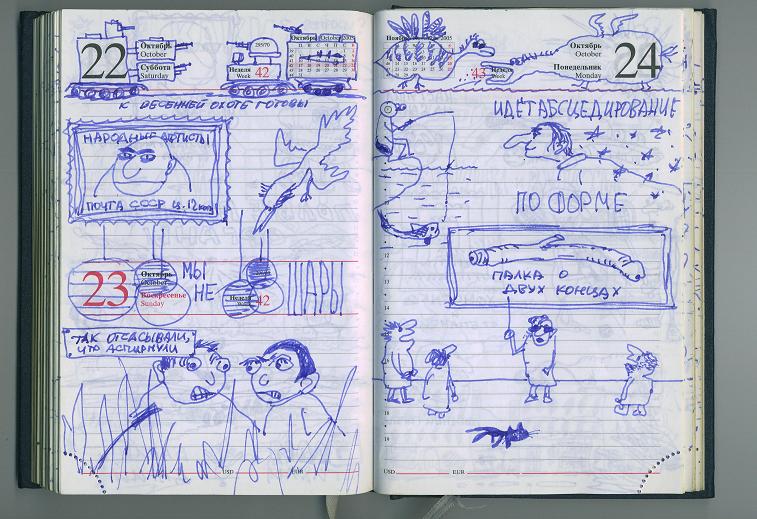 22
Октябрь
October
Суббота
Saturday
295/70
Неделя
Week
42
Октябрь October 2005
К ОСЕННЕЙ ОХОТЕ ГОТОВЫ
НАРОДНЫЕ АРТИСТЫ
ПОЧТА СССР Ц. 12 коп
23
Октябрь
October
Воскресенье
Sunday
МЫ
НЕ
Неделя
42
ШАРЫ
ТАК ОТСАСЫВАЛИ,
ЧТО АСПИРНУЛИ
USD
EUR
2005
43
Неделя
Week
Октябрь
October
Понедельник
Monday
24
ИДЁТ АБСЦЕДИРОВАНИЕ
ПО ФОРМЕ
ПАЛКА О
ДВУХ КОНЦАХ
12
13
14
17
18
19
USD
EUR